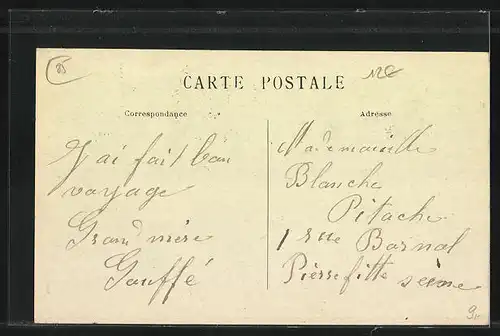 85
12€
CARTE POSTALE
Correspondance
Adresse
J'ai fait bon
voyage
Grand mère
Gouffé
Mademoiselle
Blanche
Pitache
1 rue Barnal
Pierrefitte seine